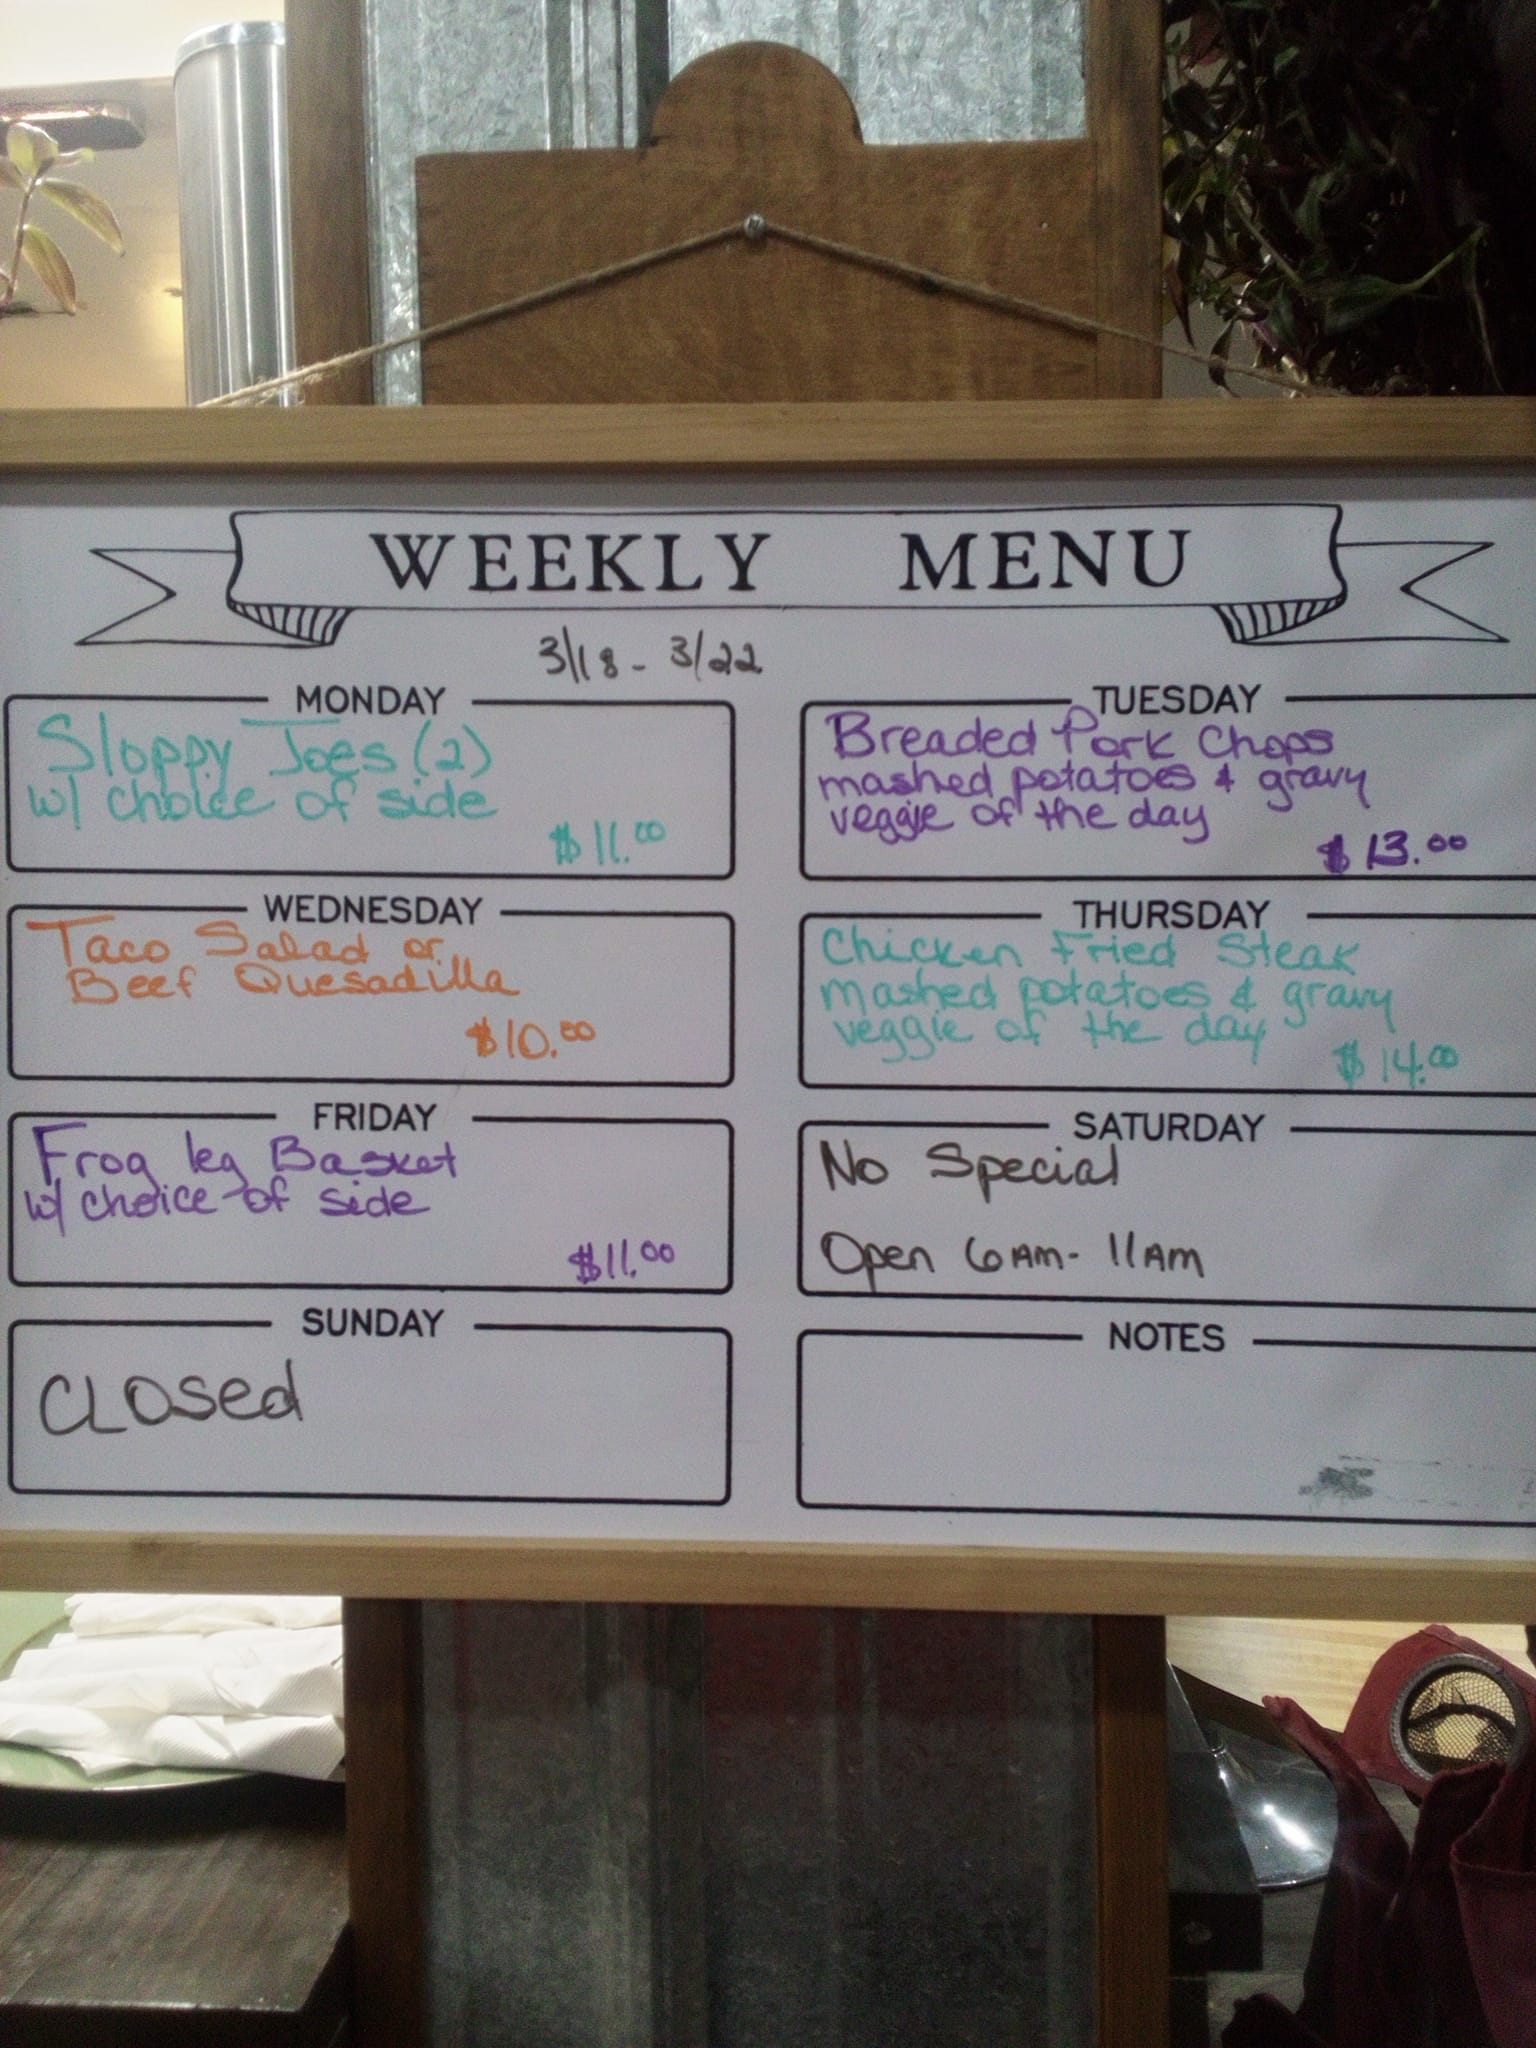 WEEKLY MENU
3/18 - 3/22
MONDAY
Sloppy Joes (2)
w/ choice of side
$11.00
TUESDAY
Breaded Pork Chops
mashed potatoes & gravy
veggie of the day
$13.00
WEDNESDAY
Taco Salad or
Beef Quesadilla
$10.00
THURSDAY
Chicken Fried Steak
mashed potatoes & gravy
veggie of the day
$14.00
FRIDAY
Frog leg Basket
w/ choice of side
$11.00
SATURDAY
No Special
Open 6AM - 11AM
SUNDAY
CLOSed
NOTES